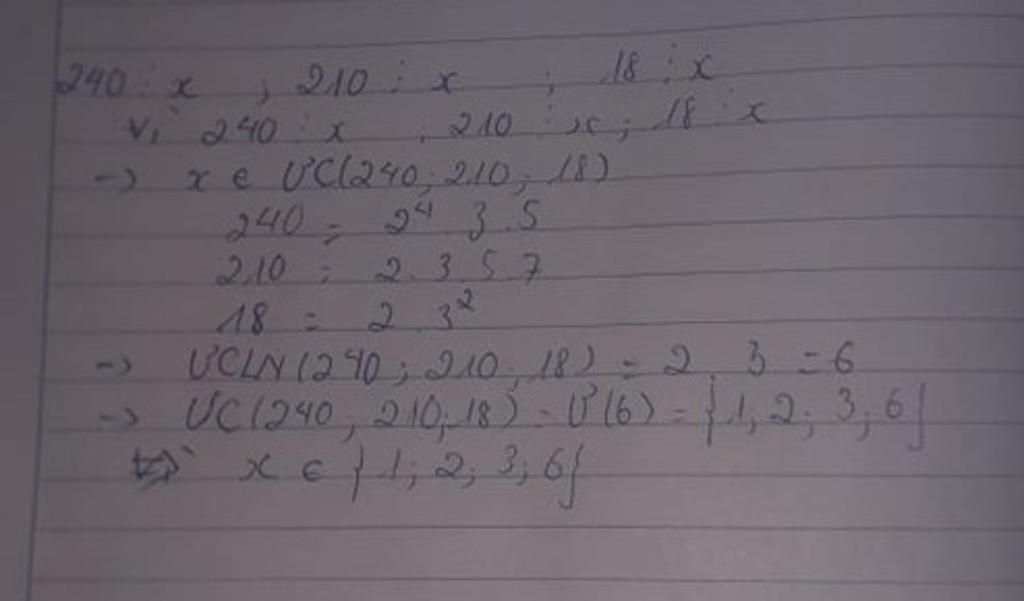 240 ⋮ x ; 210 ⋮ x ; 18 ⋮ x
Vì 240 ⋮ x ; 210 ⋮ x ; 18 ⋮ x
-> x ∈ ƯC(240; 210; 18)
240 = 2⁴ . 3 . 5
210 = 2 . 3 . 5 . 7
18 = 2 . 3²
-> ƯCLN(240; 210; 18) = 2 . 3 = 6
-> ƯC(240; 210; 18) = Ư(6) = {1; 2; 3; 6}
x ∈ {1; 2; 3; 6}